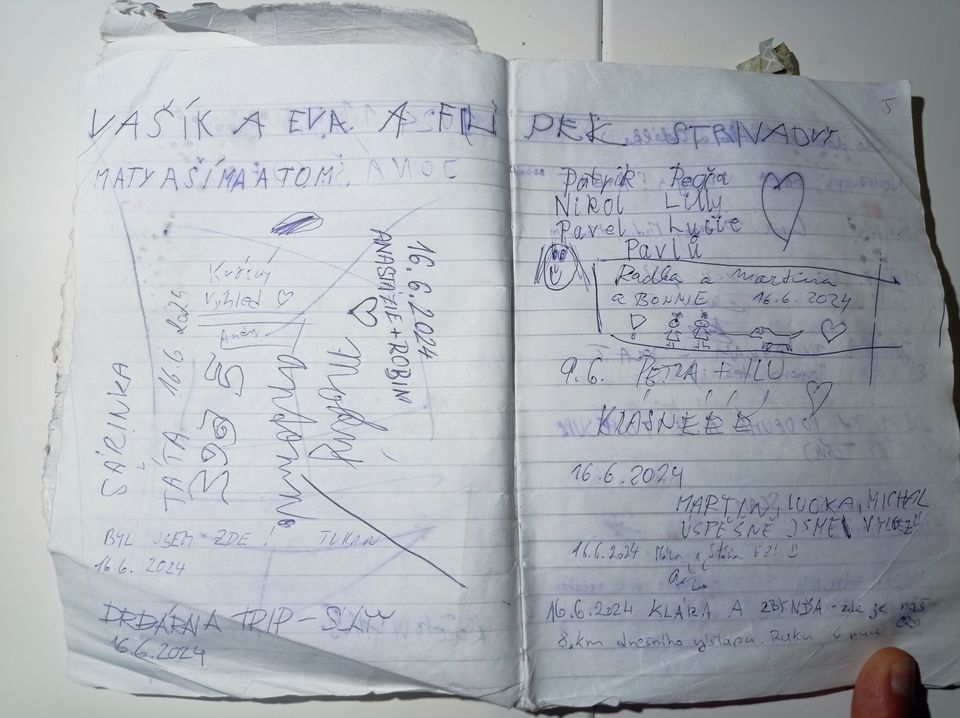 VAŠÍK A EVA A FILÍPEK STRNADOVI
MATYAŠ ÍMA A TOM
16.6.2024
ANASTÁZIE + ROBIN
Krásný
výhled
TÁTA 16.6 2024
SÁRINKA
BYL JSEM ZDE! TUKAN
16.6. 2024
DRDÁRNA TRIP - SAM
16.6.2024
5
Patrik Pegča
Nikol Lilly
Pavel Lucie
Pavlů
Radka a Martina
a BONNIE 16.6.2024
9.6. PETRA + ILU
KRÁSNÉÉÉ
16.6.2024
MARTIN, LUCKA, MICHAL
ÚSPĚŠNĚ JSME
16.6.2024
16.6.2024 KLÁRA A ZBYNĎA - zde je náš
8.km dnešního výšlapu. Ruku v ruce